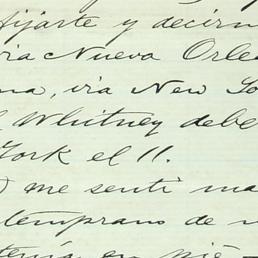 fijarte y decirm
via Nueva Orle
na, via New Yo
Whitney debe
York el 11.
me sentí ma
temprano de
tenía en pie